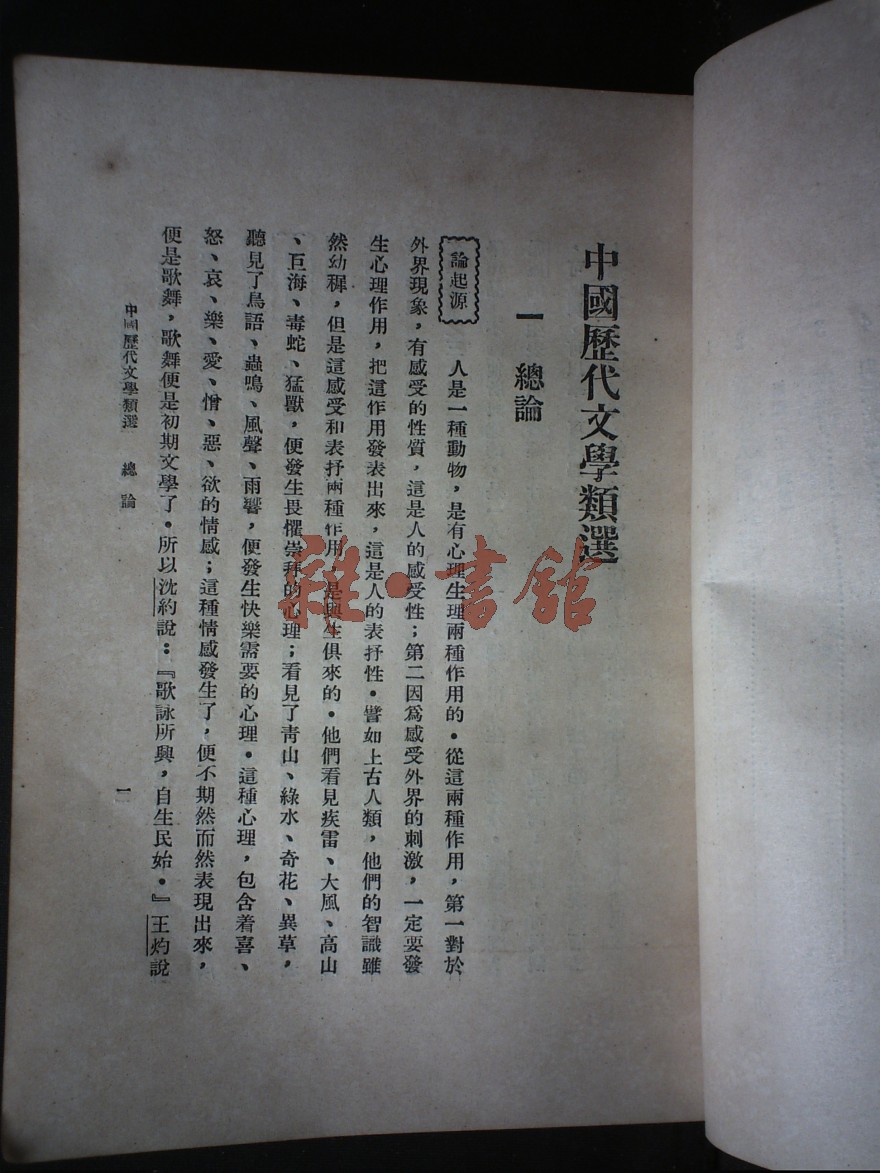 中國歷代文學類選
一 總論
論起源
人是一種動物，是有心理生理兩種作用的。從這兩種作用，第一對於
外界現象，有感受的性質，這是人的感受性；第二因爲感受外界的刺激，一定要發
生心理作用，把這作用發表出來，這是人的表抒性。譬如上古人類，他們的智識雖
然幼穉，但是這感受和表抒兩種作用，是與生俱來的。他們看見疾雷、大風、高山
、巨海、毒蛇、猛獸，便發生畏懼崇拜的心理；看見了青山、綠水、奇花、異草，
聽見了鳥語、蟲鳴、風聲、雨響，便發生快樂需要的心理。這種心理，包含着喜、
怒、哀、樂、愛、憎、惡、欲的情感；這種情感發生了，便不期然而然表現出來，
便是歌舞，歌舞便是初期文學了。所以沈約說：『歌詠所興，自生民始。』王灼說
中國歷代文學類選 總論
一
雜·書館